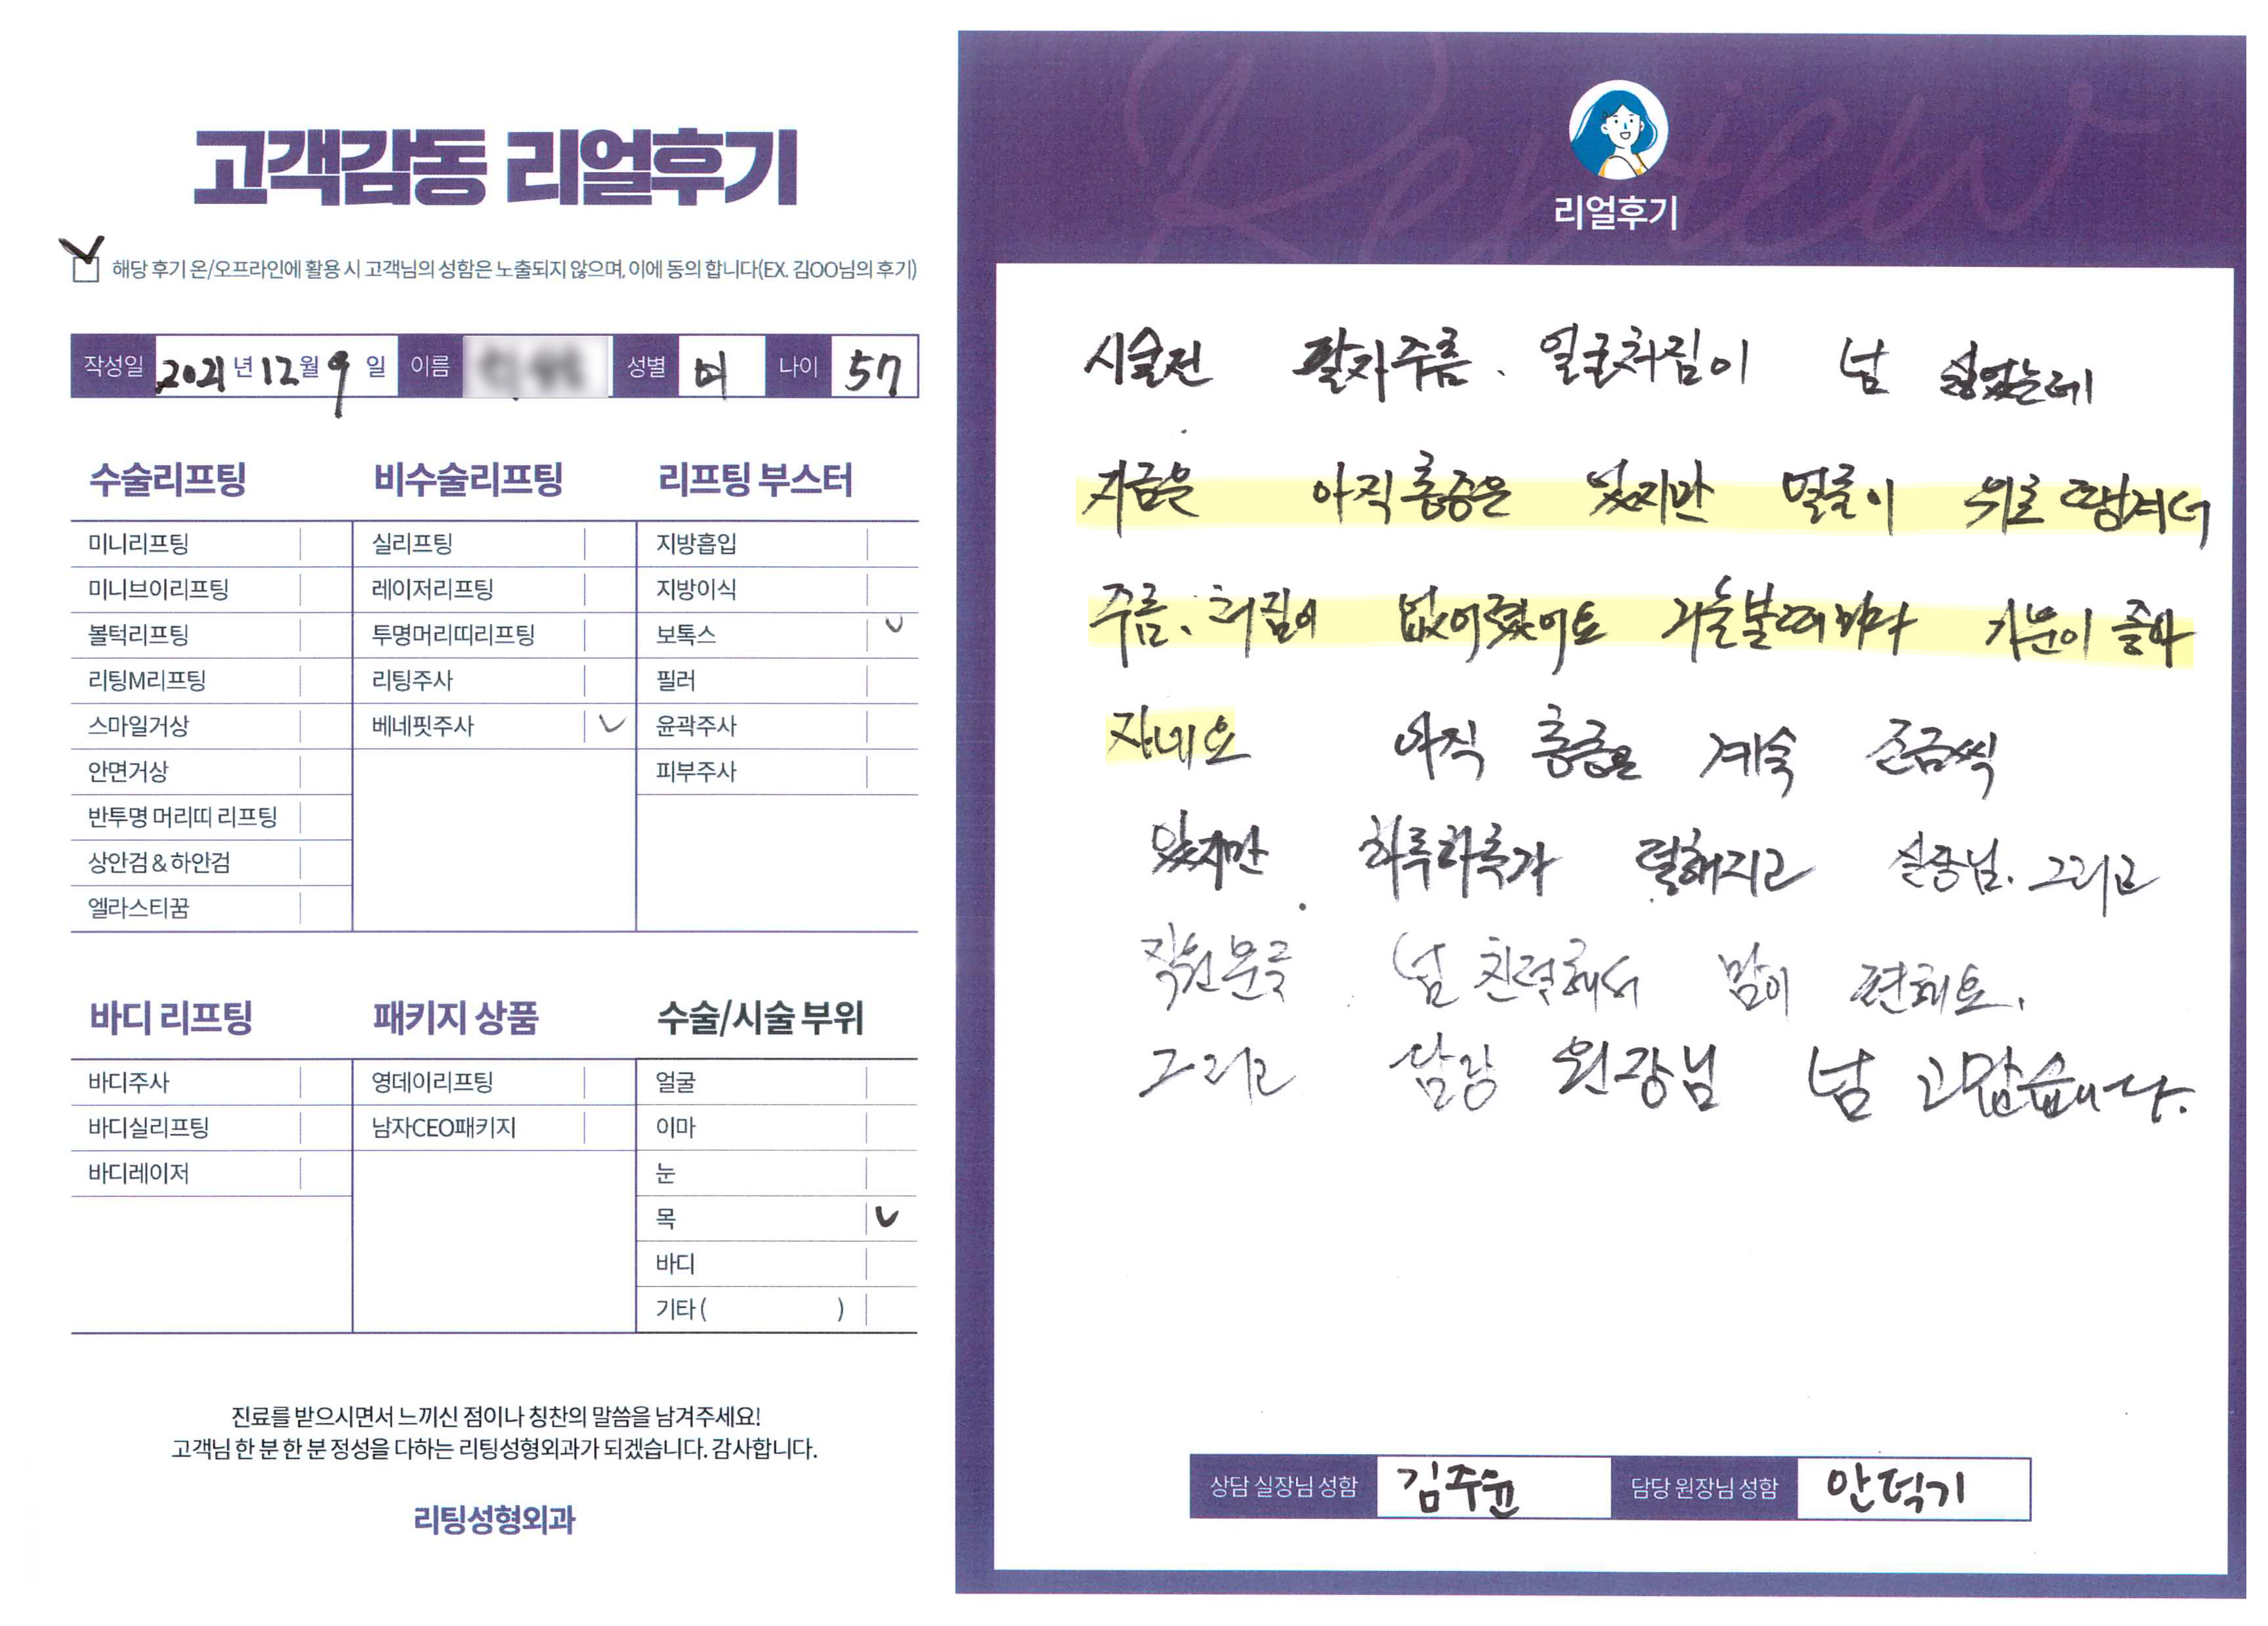 고객감동 리얼후기
해당 후기 온/오프라인에 활용 시 고객님의 성함은 노출되지 않으며, 이에 동의 합니다(EX. 김OO님의 후기)
작성일 2021년 12월 9일 이름 성별 여 나이 57
수술리프팅
미니리프팅
미니브이리프팅
볼턱리프팅
리팅M리프팅
스마일거상
안면거상
반투명 머리띠 리프팅
상안검 & 하안검
엘라스티꿈
비수술리프팅
실리프팅
레이저리프팅
투명머리띠리프팅
리팅주사
베네핏주사
리프팅 부스터
지방흡입
지방이식
보톡스
필러
윤곽주사
피부주사
바디 리프팅
바디주사
바디실리프팅
바디레이저
패키지 상품
영데이리프팅
남자CEO패키지
수술/시술 부위
얼굴
이마
눈
목
바디
기타 ( )
진료를 받으시면서 느끼신 점이나 칭찬의 말씀을 남겨주세요!
고객님 한 분 한 분 정성을 다하는 리팅성형외과가 되겠습니다. 감사합니다.
리팅성형외과
Review
리얼후기
시술전 팔자주름. 얼굴처짐이 넘 싫었는데
지금은 아직 통증은 있지만 얼굴이 위로 땡겨서
주름. 처짐이 없어졌어요 거울볼때마다 기분이 좋아
지네요 아직 통증은 계속 조금씩
있지만 하루하루가 덜해지고 실장님. 그리고
직원분들 넘 친절해서 맘이 편해요.
그리고 담당 원장님 넘 고맙습니다.
상담 실장님 성함 김주윤 담당 원장님 성함 안덕기